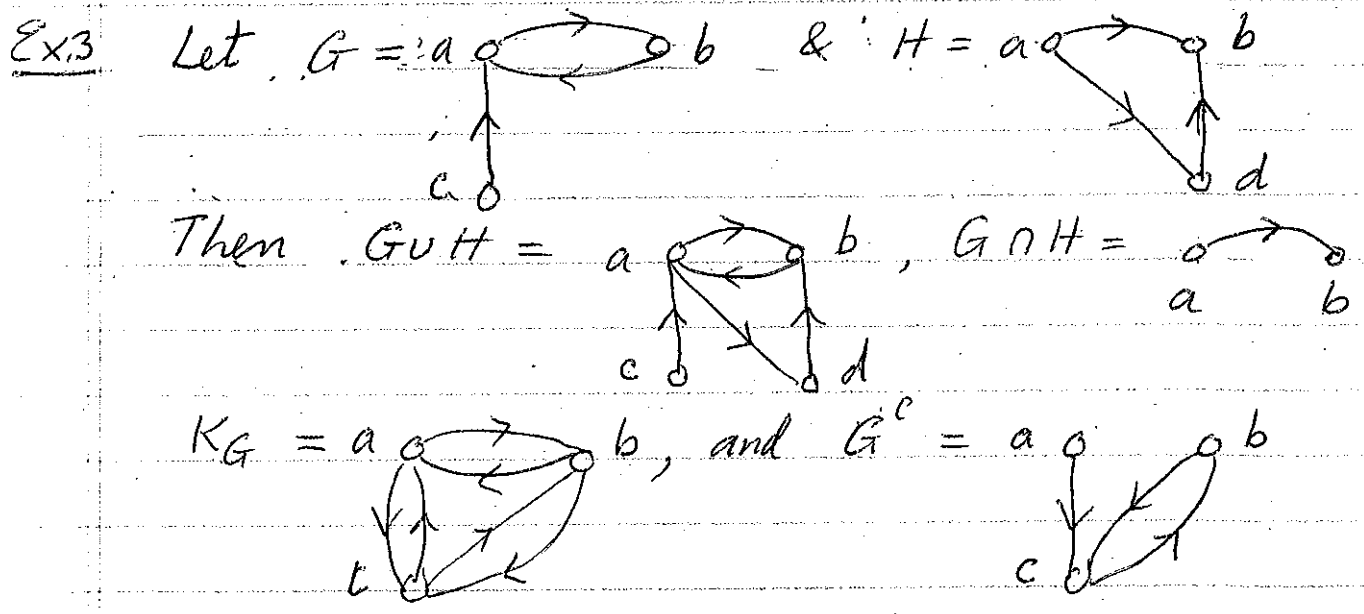 Ex.3 Let G = a b & H = a b
c d
Then G∪H = a b , G∩H =
a b
c d
K_G = a b, and G^c = a b
c c